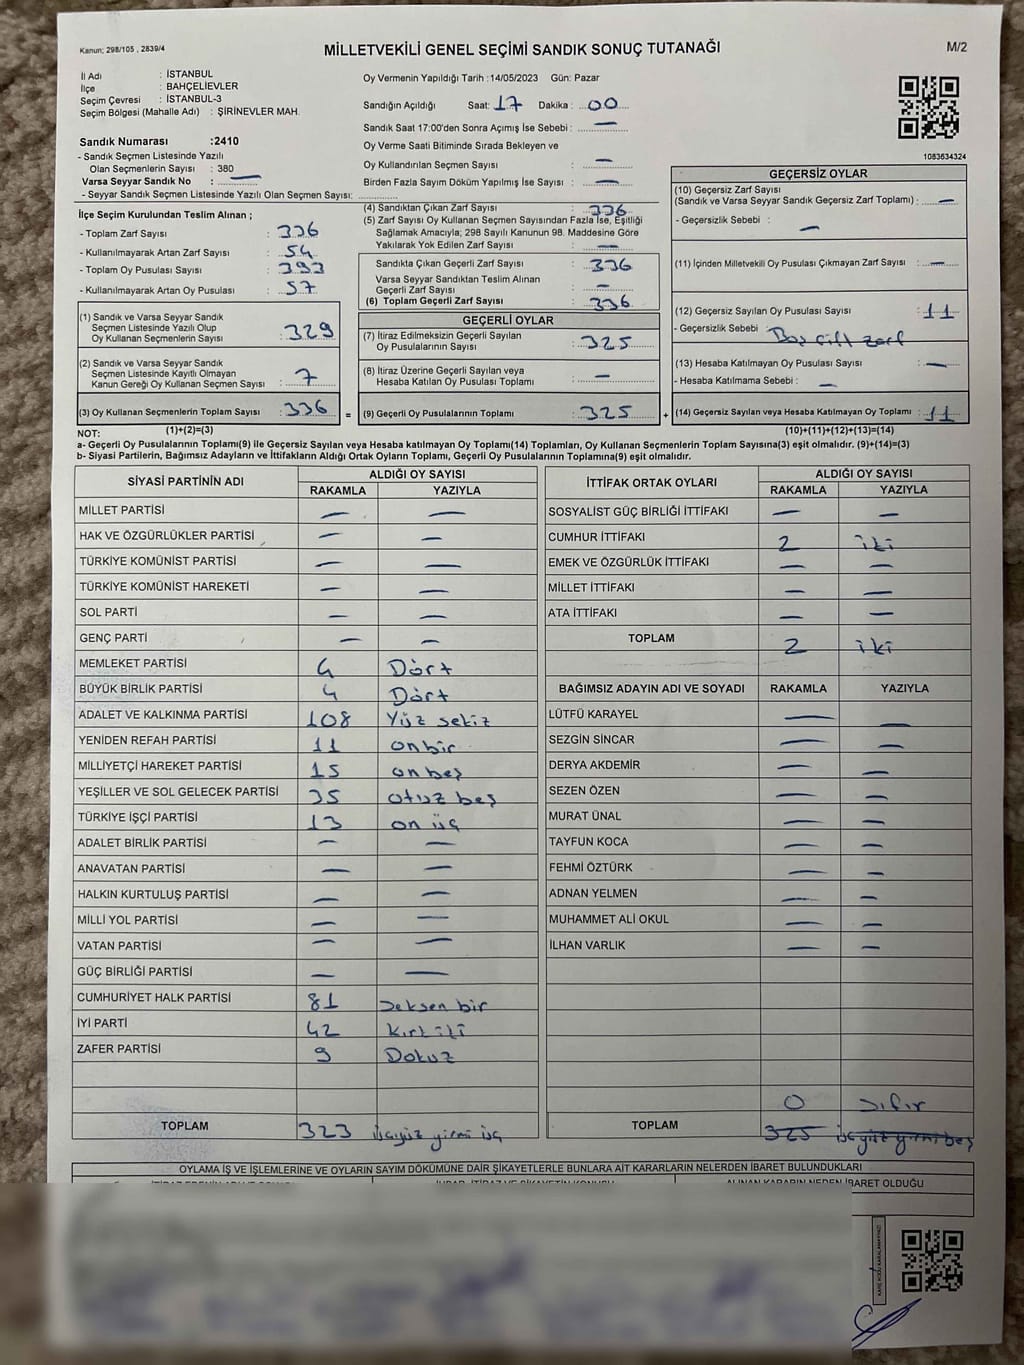 Kanun; 298/105 , 2839/4
MİLLETVEKİLİ GENEL SEÇİMİ SANDIK SONUÇ TUTANAĞI
M/2
İl Adı : İSTANBUL
İlçe : BAHÇELİEVLER
Seçim Çevresi : İSTANBUL-3
Seçim Bölgesi (Mahalle Adı) : ŞİRİNEVLER MAH.
Sandık Numarası :2410
- Sandık Seçmen Listesinde Yazılı
Olan Seçmenlerin Sayısı : 380
Varsa Seyyar Sandık No : —
- Seyyar Sandık Seçmen Listesinde Yazılı Olan Seçmen Sayısı:
Oy Vermenin Yapıldığı Tarih :14/05/2023 Gün: Pazar
Sandığın Açıldığı Saat: 17 Dakika : 00
Sandık Saat 17:00'den Sonra Açımış İse Sebebi : —
Oy Verme Saati Bitiminde Sırada Bekleyen ve
Oy Kullandırılan Seçmen Sayısı : —
Birden Fazla Sayım Döküm Yapılmış İse Sayısı : —
1083634324
İlçe Seçim Kurulundan Teslim Alınan ;
- Toplam Zarf Sayısı : 336
- Kullanılmayarak Artan Zarf Sayısı : 54
- Toplam Oy Pusulası Sayısı : 393
- Kullanılmayarak Artan Oy Pusulası : 57
(1) Sandık ve Varsa Seyyar Sandık
Seçmen Listesinde Yazılı Olup
Oy Kullanan Seçmenlerin Sayısı : 329
(2) Sandık ve Varsa Seyyar Sandık
Seçmen Listesinde Kayıtlı Olmayan
Kanun Gereği Oy Kullanan Seçmen Sayısı : 7
(3) Oy Kullanan Seçmenlerin Toplam Sayısı : 336 =
(1)+(2)=(3)
(4) Sandıktan Çıkan Zarf Sayısı : 336
(5) Zarf Sayısı Oy Kullanan Seçmen Sayısından Fazla İse, Eşitliği
Sağlamak Amacıyla; 298 Sayılı Kanunun 98. Maddesine Göre
Yakılarak Yok Edilen Zarf Sayısı : —
Sandıkta Çıkan Geçerli Zarf Sayısı : 336
Varsa Seyyar Sandıktan Teslim Alınan
Geçerli Zarf Sayısı : —
(6) Toplam Geçerli Zarf Sayısı : 336
GEÇERLİ OYLAR
(7) İtiraz Edilmeksizin Geçerli Sayılan
Oy Pusulalarının Sayısı : 325
(8) İtiraz Üzerine Geçerli Sayılan veya
Hesaba Katılan Oy Pusulası Toplamı : —
(9) Geçerli Oy Pusulalarının Toplamı : 325 +
GEÇERSİZ OYLAR
(10) Geçersiz Zarf Sayısı
(Sandık ve Varsa Seyyar Sandık Geçersiz Zarf Toplamı) : —
- Geçersizlik Sebebi : —
(11) İçinden Milletvekili Oy Pusulası Çıkmayan Zarf Sayısı : —
(12) Geçersiz Sayılan Oy Pusulası Sayısı : 11
- Geçersizlik Sebebi : Boş çift zarf
(13) Hesaba Katılmayan Oy Pusulası Sayısı : —
- Hesaba Katılmama Sebebi : —
(14) Geçersiz Sayılan veya Hesaba Katılmayan Oy Toplamı : 11
(10)+(11)+(12)+(13)=(14)
NOT:
a- Geçerli Oy Pusulalarının Toplamı(9) ile Geçersiz Sayılan veya Hesaba katılmayan Oy Toplamı(14) Toplamları, Oy Kullanan Seçmenlerin Toplam Sayısına(3) eşit olmalıdır. (9)+(14)=(3)
b- Siyasi Partilerin, Bağımsız Adayların ve İttifakların Aldığı Ortak Oyların Toplamı, Geçerli Oy Pusulalarının Toplamına(9) eşit olmalıdır.
SİYASİ PARTİNİN ADI
ALDIĞI OY SAYISI
RAKAMLA YAZIYLA
MİLLET PARTİSİ — —
HAK VE ÖZGÜRLÜKLER PARTİSİ — —
TÜRKİYE KOMÜNİST PARTİSİ — —
TÜRKİYE KOMÜNİST HAREKETİ — —
SOL PARTİ — —
GENÇ PARTİ — —
MEMLEKET PARTİSİ 4 Dört
BÜYÜK BİRLİK PARTİSİ 4 Dört
ADALET VE KALKINMA PARTİSİ 108 Yüz sekiz
YENİDEN REFAH PARTİSİ 11 onbir
MİLLİYETÇİ HAREKET PARTİSİ 15 onbeş
YEŞİLLER VE SOL GELECEK PARTİSİ 35 otuz beş
TÜRKİYE İŞÇİ PARTİSİ 13 on üç
ADALET BİRLİK PARTİSİ — —
ANAVATAN PARTİSİ — —
HALKIN KURTULUŞ PARTİSİ — —
MİLLİ YOL PARTİSİ — —
VATAN PARTİSİ — —
GÜÇ BİRLİĞİ PARTİSİ — —
CUMHURİYET HALK PARTİSİ 81 Seksen bir
İYİ PARTİ 42 Kırk iki
ZAFER PARTİSİ 9 Dokuz
TOPLAM 323 üçyüz yirmi üç
İTTİFAK ORTAK OYLARI
ALDIĞI OY SAYISI
RAKAMLA YAZIYLA
SOSYALİST GÜÇ BİRLİĞİ İTTİFAKI — —
CUMHUR İTTİFAKI 2 iki
EMEK VE ÖZGÜRLÜK İTTİFAKI — —
MİLLET İTTİFAKI — —
ATA İTTİFAKI — —
TOPLAM 2 iki
BAĞIMSIZ ADAYIN ADI VE SOYADI RAKAMLA YAZIYLA
LÜTFÜ KARAYEL — —
SEZGİN SİNCAR — —
DERYA AKDEMİR — —
SEZEN ÖZEN — —
MURAT ÜNAL — —
TAYFUN KOCA — —
FEHMİ ÖZTÜRK — —
ADNAN YELMEN — —
MUHAMMET ALİ OKUL — —
İLHAN VARLIK — —
0 sıfır
TOPLAM 325 üçyüz yirmi beş
OYLAMA İŞ VE İŞLEMLERİNE VE OYLARIN SAYIM DÖKÜMÜNE DAİR ŞİKAYETLERLE BUNLARA AİT KARARLARIN NELERDEN İBARET BULUNDUKLARI
ALINAN KARARIN NEDEN İBARET OLDUĞU